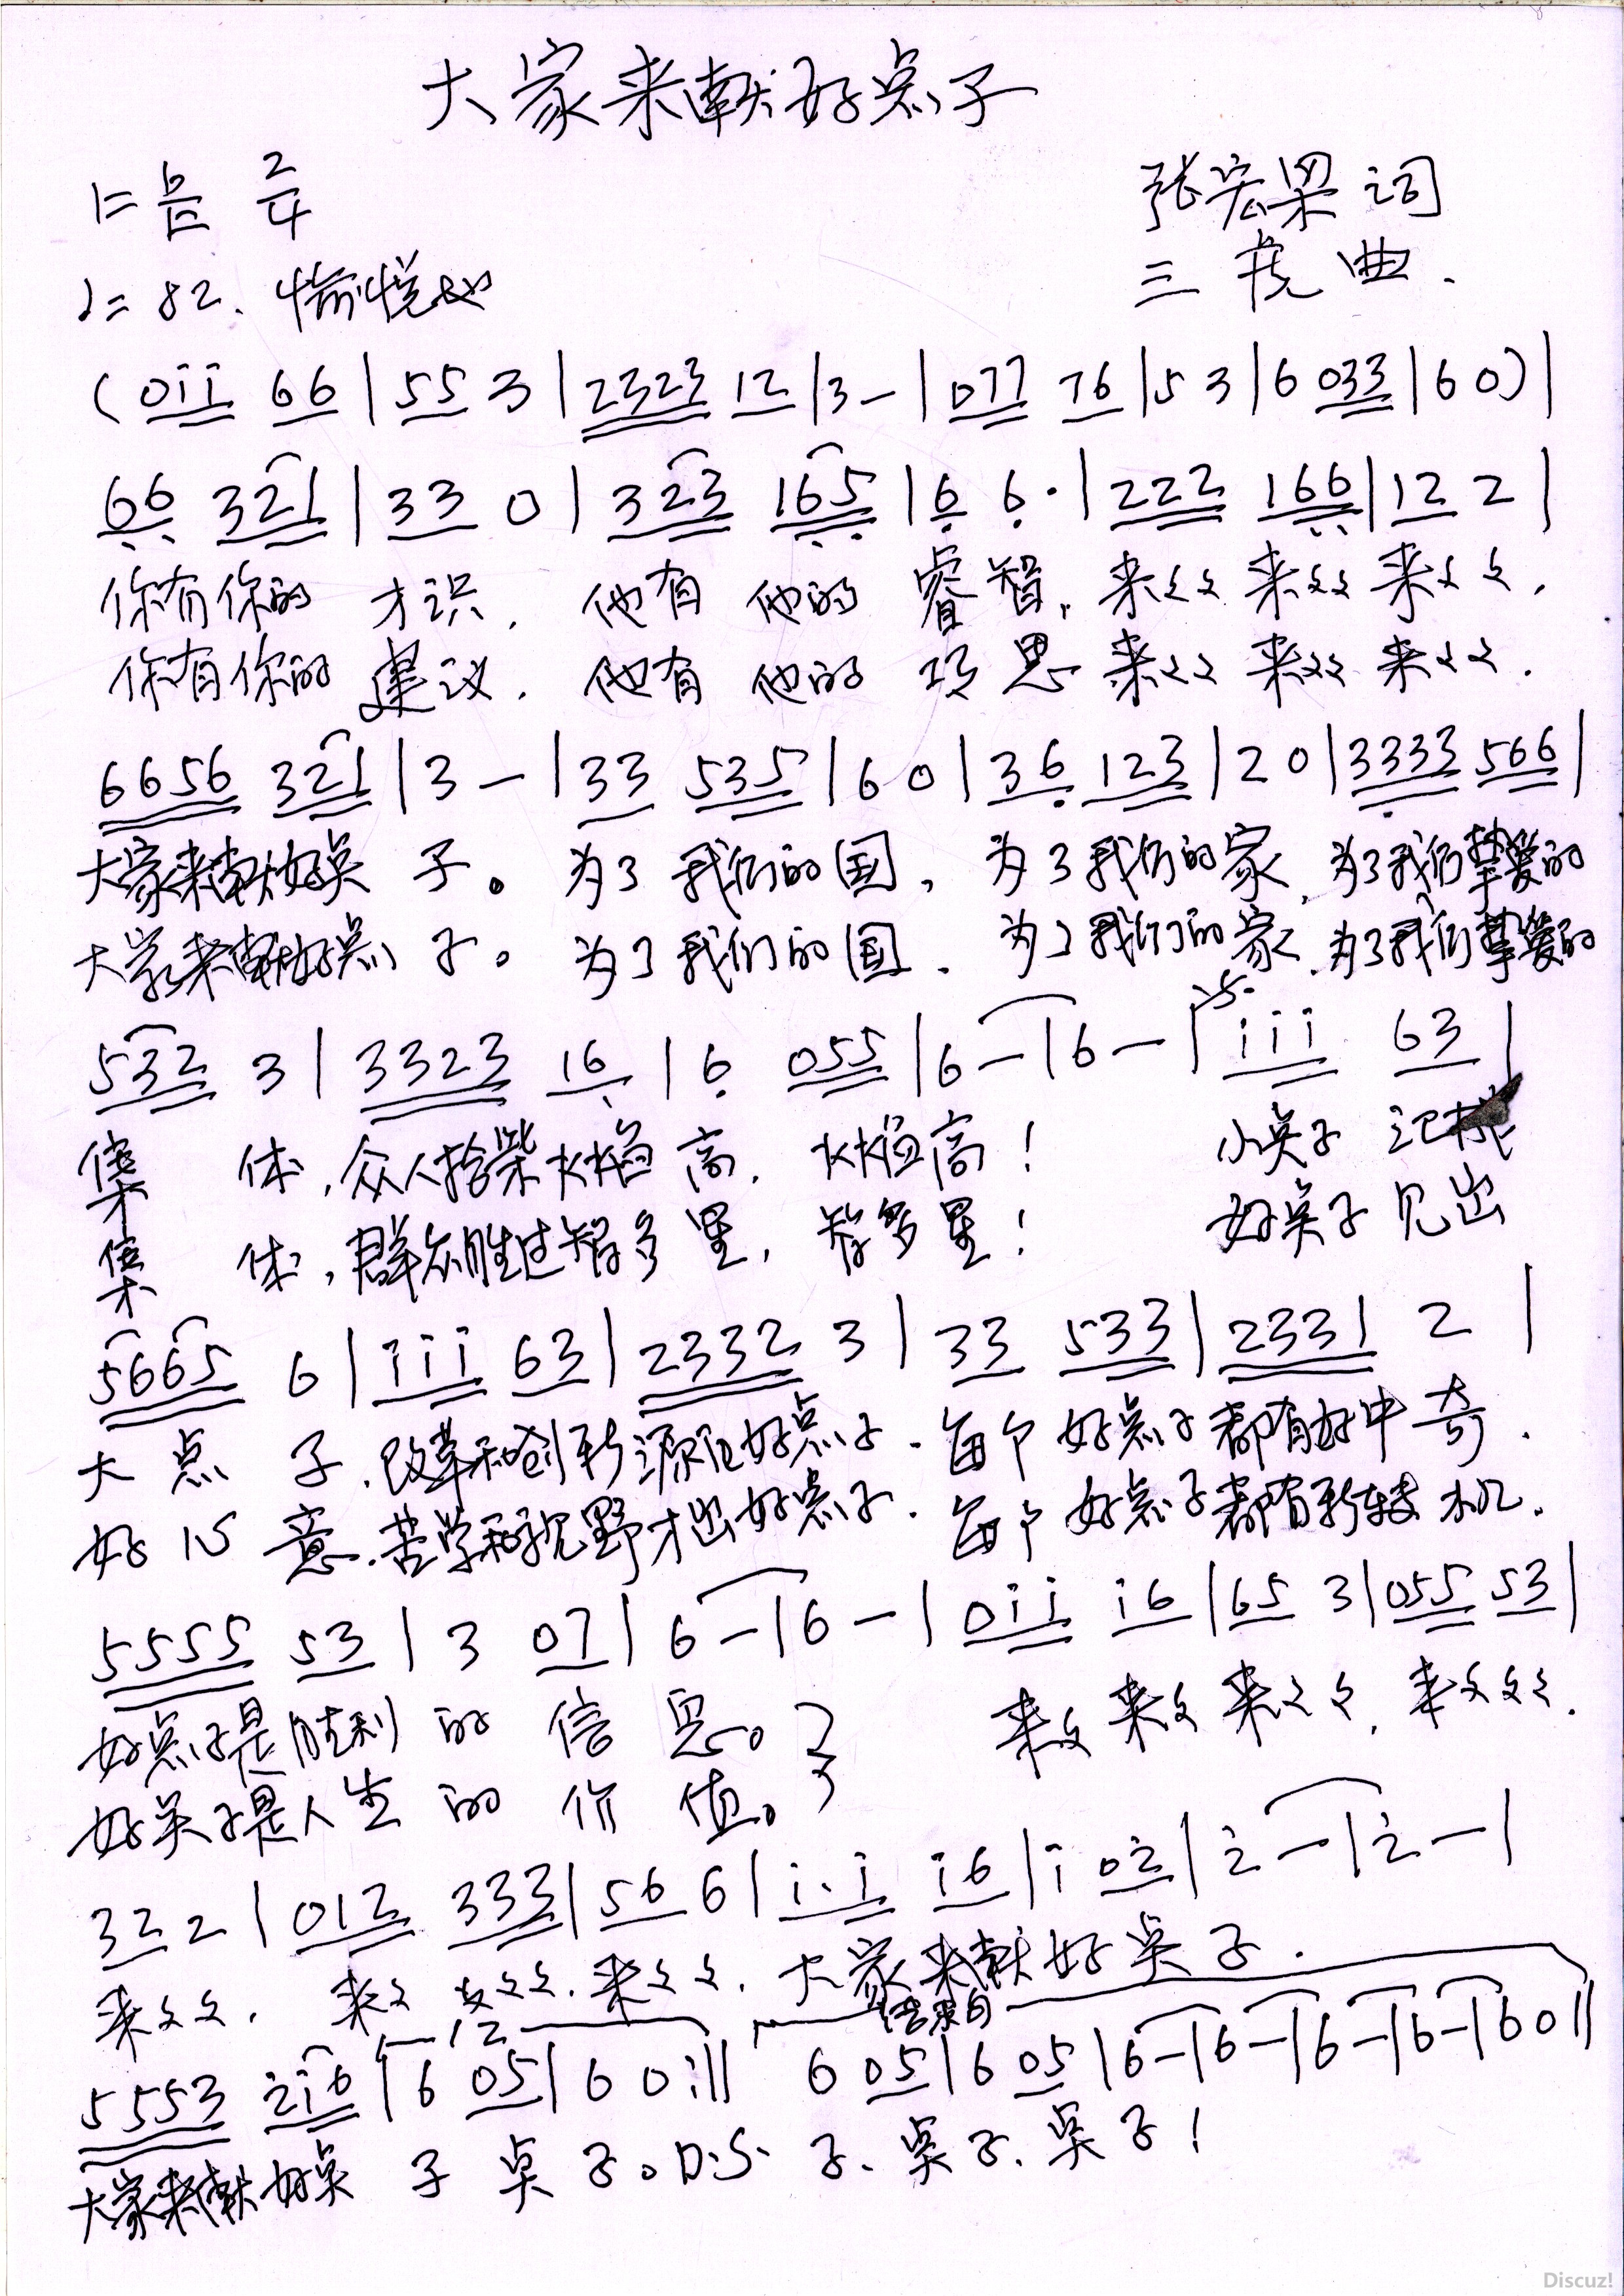 大家来献好点子
1=bE 2/4 张宏果 词
♩=82. 愉悦地 三 曲.
(0i̇i̇ 66|55 3|2323 12|3-|077 76|53|6 033|60)|
66 321|33 0|323 165|6 6·|222 166|12 2|
你有你的 才识, 他有 他的 睿智, 来々々 来々々 来々々,
你有你的 建议, 他有 他的 巧思 来々々 来々々 来々々.
6656 321|3-|33 535|60|36 123|20|3333 566|
大家来献好点 子。 为了 我们的国, 为了我们的家, 为了我们挚爱的
大家来献好点 子。 为了我们的国, 为了我们的家, 为了我们挚爱的
532 3|3323 16|6 055|6-|6-|i̇i̇i̇ 63|
集 体,众人拾柴火焰高, 火焰高! 小点子 汇成
集 体,群众胜过智多星, 智多星! 好点子 见出
5665 6|i̇i̇i̇ 63|2332 3|33 533|2331 2|
大 点 子,改革和创新源自好点子. 每个 好点子都有好 奇.
好 心 意.苦学和视野才出好点子. 每个 好点子都有新转机.
5555 53|3 07|6-|6-|0i̇i̇ i̇6|65 3|055 53|
好点子是胜利 的 信 息。} 来々 来々 来々々, 来々々々.
好点子是人生 的 价 值。
32 2|012 333|56 6|i̇·i̇ i̇6|i̇ 02̇|2̇-|2̇-|
来々々. 来々 々々々. 来々々. 大家来献好点子.
12 结束句
5553 2̇i̇6|6 05|60:‖ 6 05|6 05|6-|6-|6-|6-|60‖
大家来献好点 子 点 子。D.S. 子、点子、点子!
Discuz!